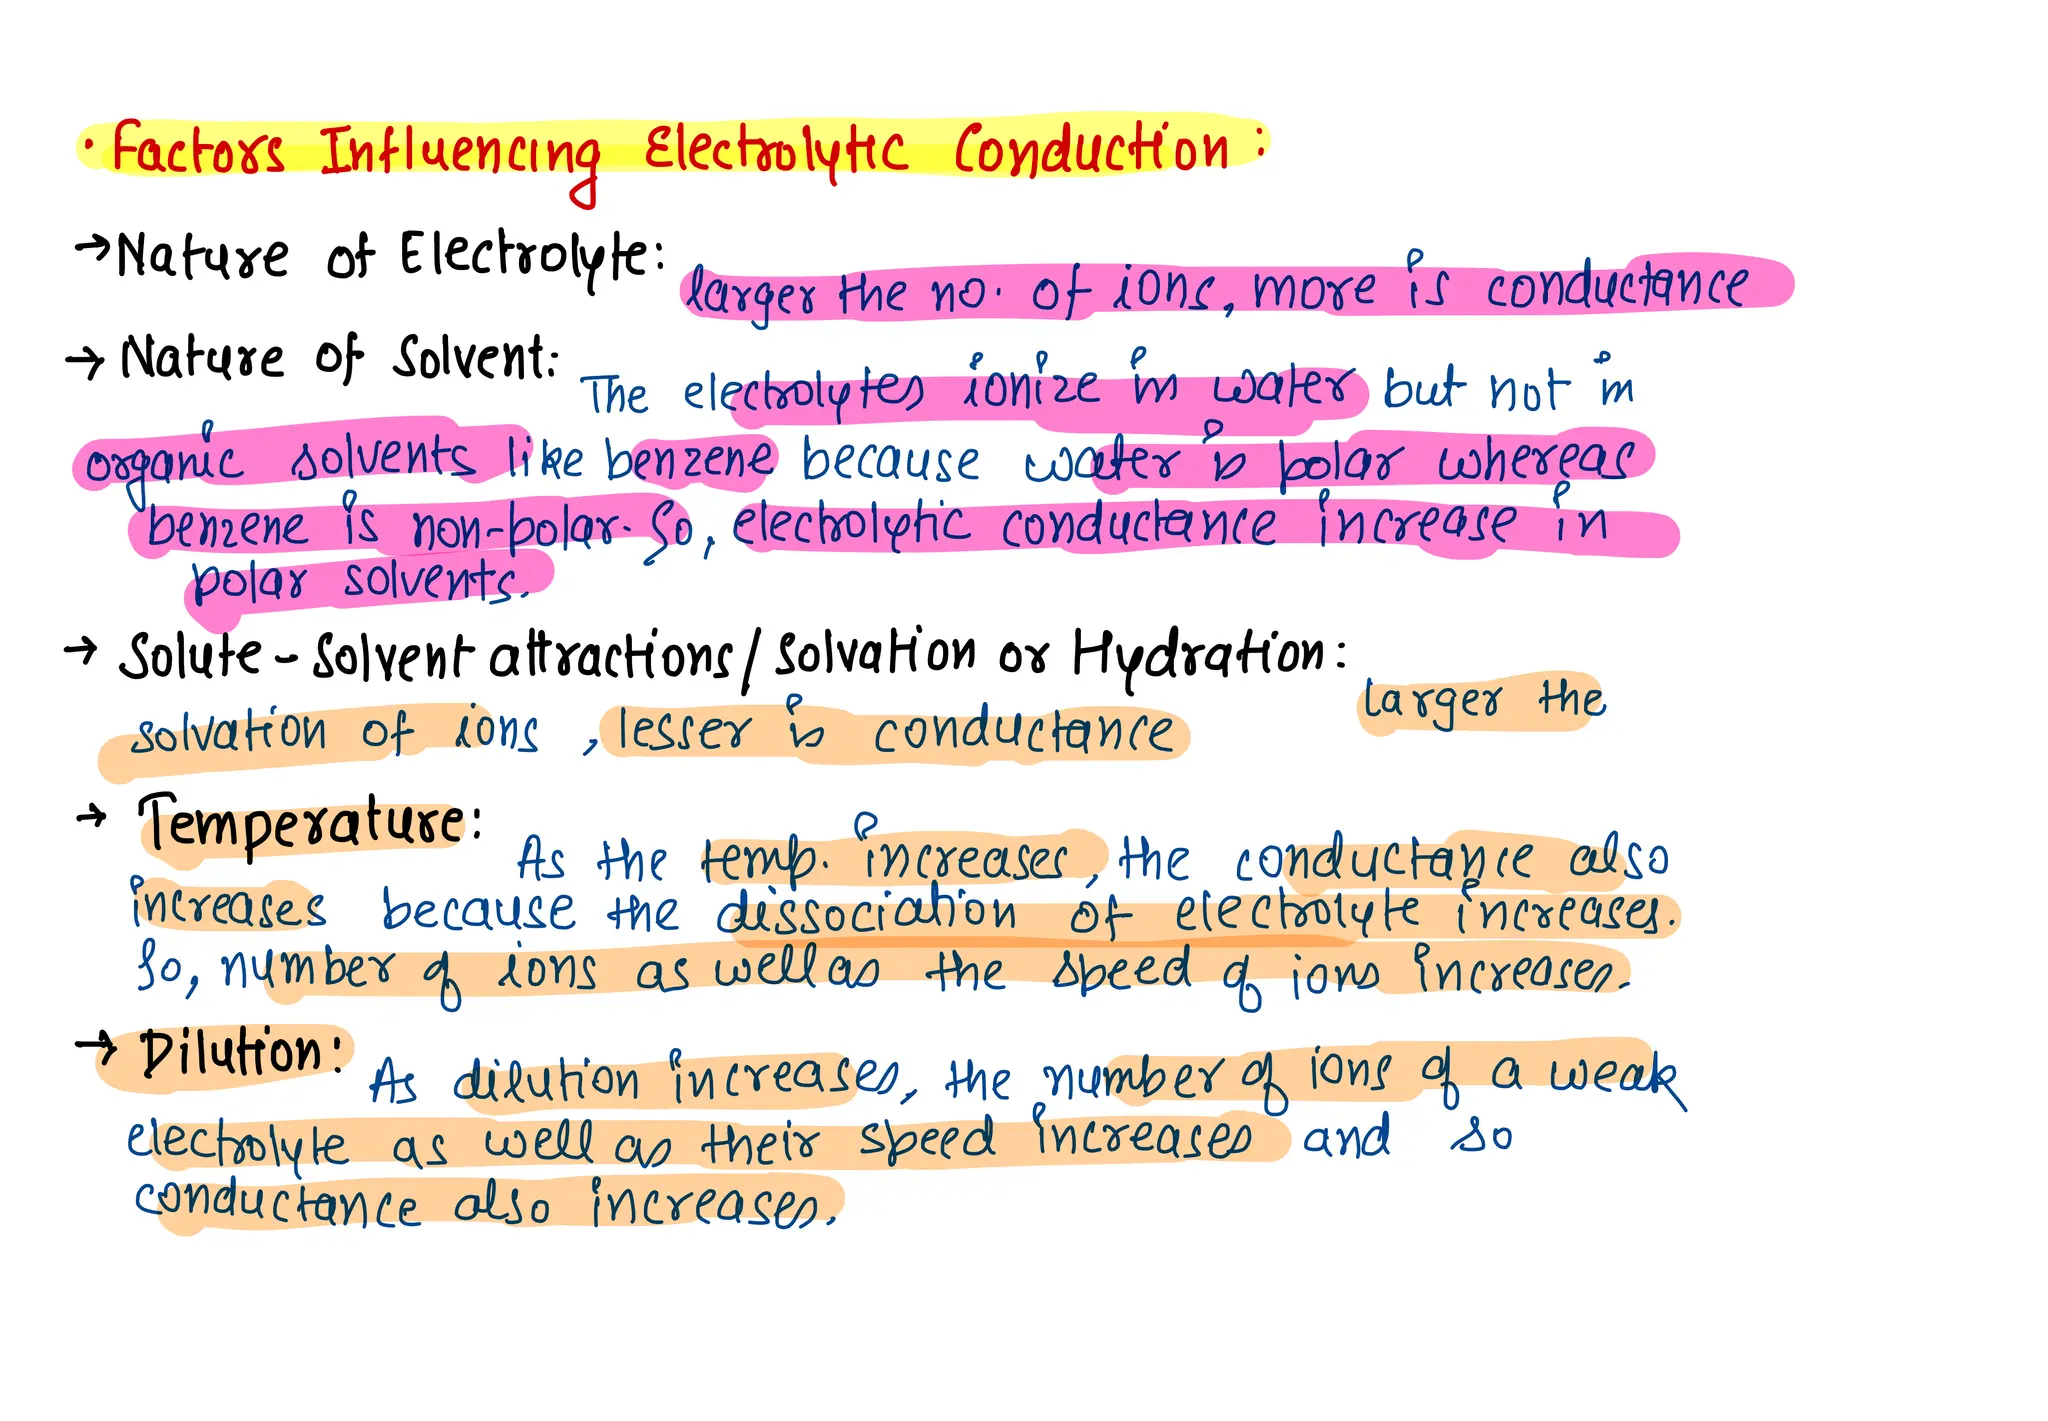 · Factors Influencing Electrolytic Conduction:
→ Nature of Electrolyte: larger the no. of ions, more is conductance
→ Nature of Solvent: The electrolytes ionize in water but not in
organic solvents like benzene because water is polar whereas
benzene is non-polar. So, electrolytic conductance increase in
polar solvents.
→ Solute-Solvent attractions/Solvation or Hydration: Larger the
solvation of ions, lesser is conductance
→ Temperature: As the temp. increases, the conductance also
increases because the dissociation of electrolyte increases.
So, number of ions as well as the speed of ions increases.
→ Dilution: As dilution increases, the number of ions of a weak
electrolyte as well as their speed increases and so
conductance also increases.